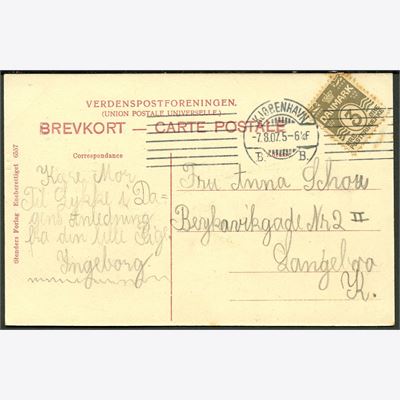 VERDENSPOSTFORENINGEN.
(UNION POSTALE UNIVERSELLE.)
BREVKORT — CARTE POSTALE
Correspondance
Kære Mor
Til Lykke i Da-
gens Anledning
fra din lille Pige
Ingeborg
Stenders Forlag Eneberettiget 6557
KJØBENHAVN
-7.8.07.5-6
B. B.
DANMARK
5
Fru Anna Schou
Beykavikgade Nr 2 II
Langebro
K.